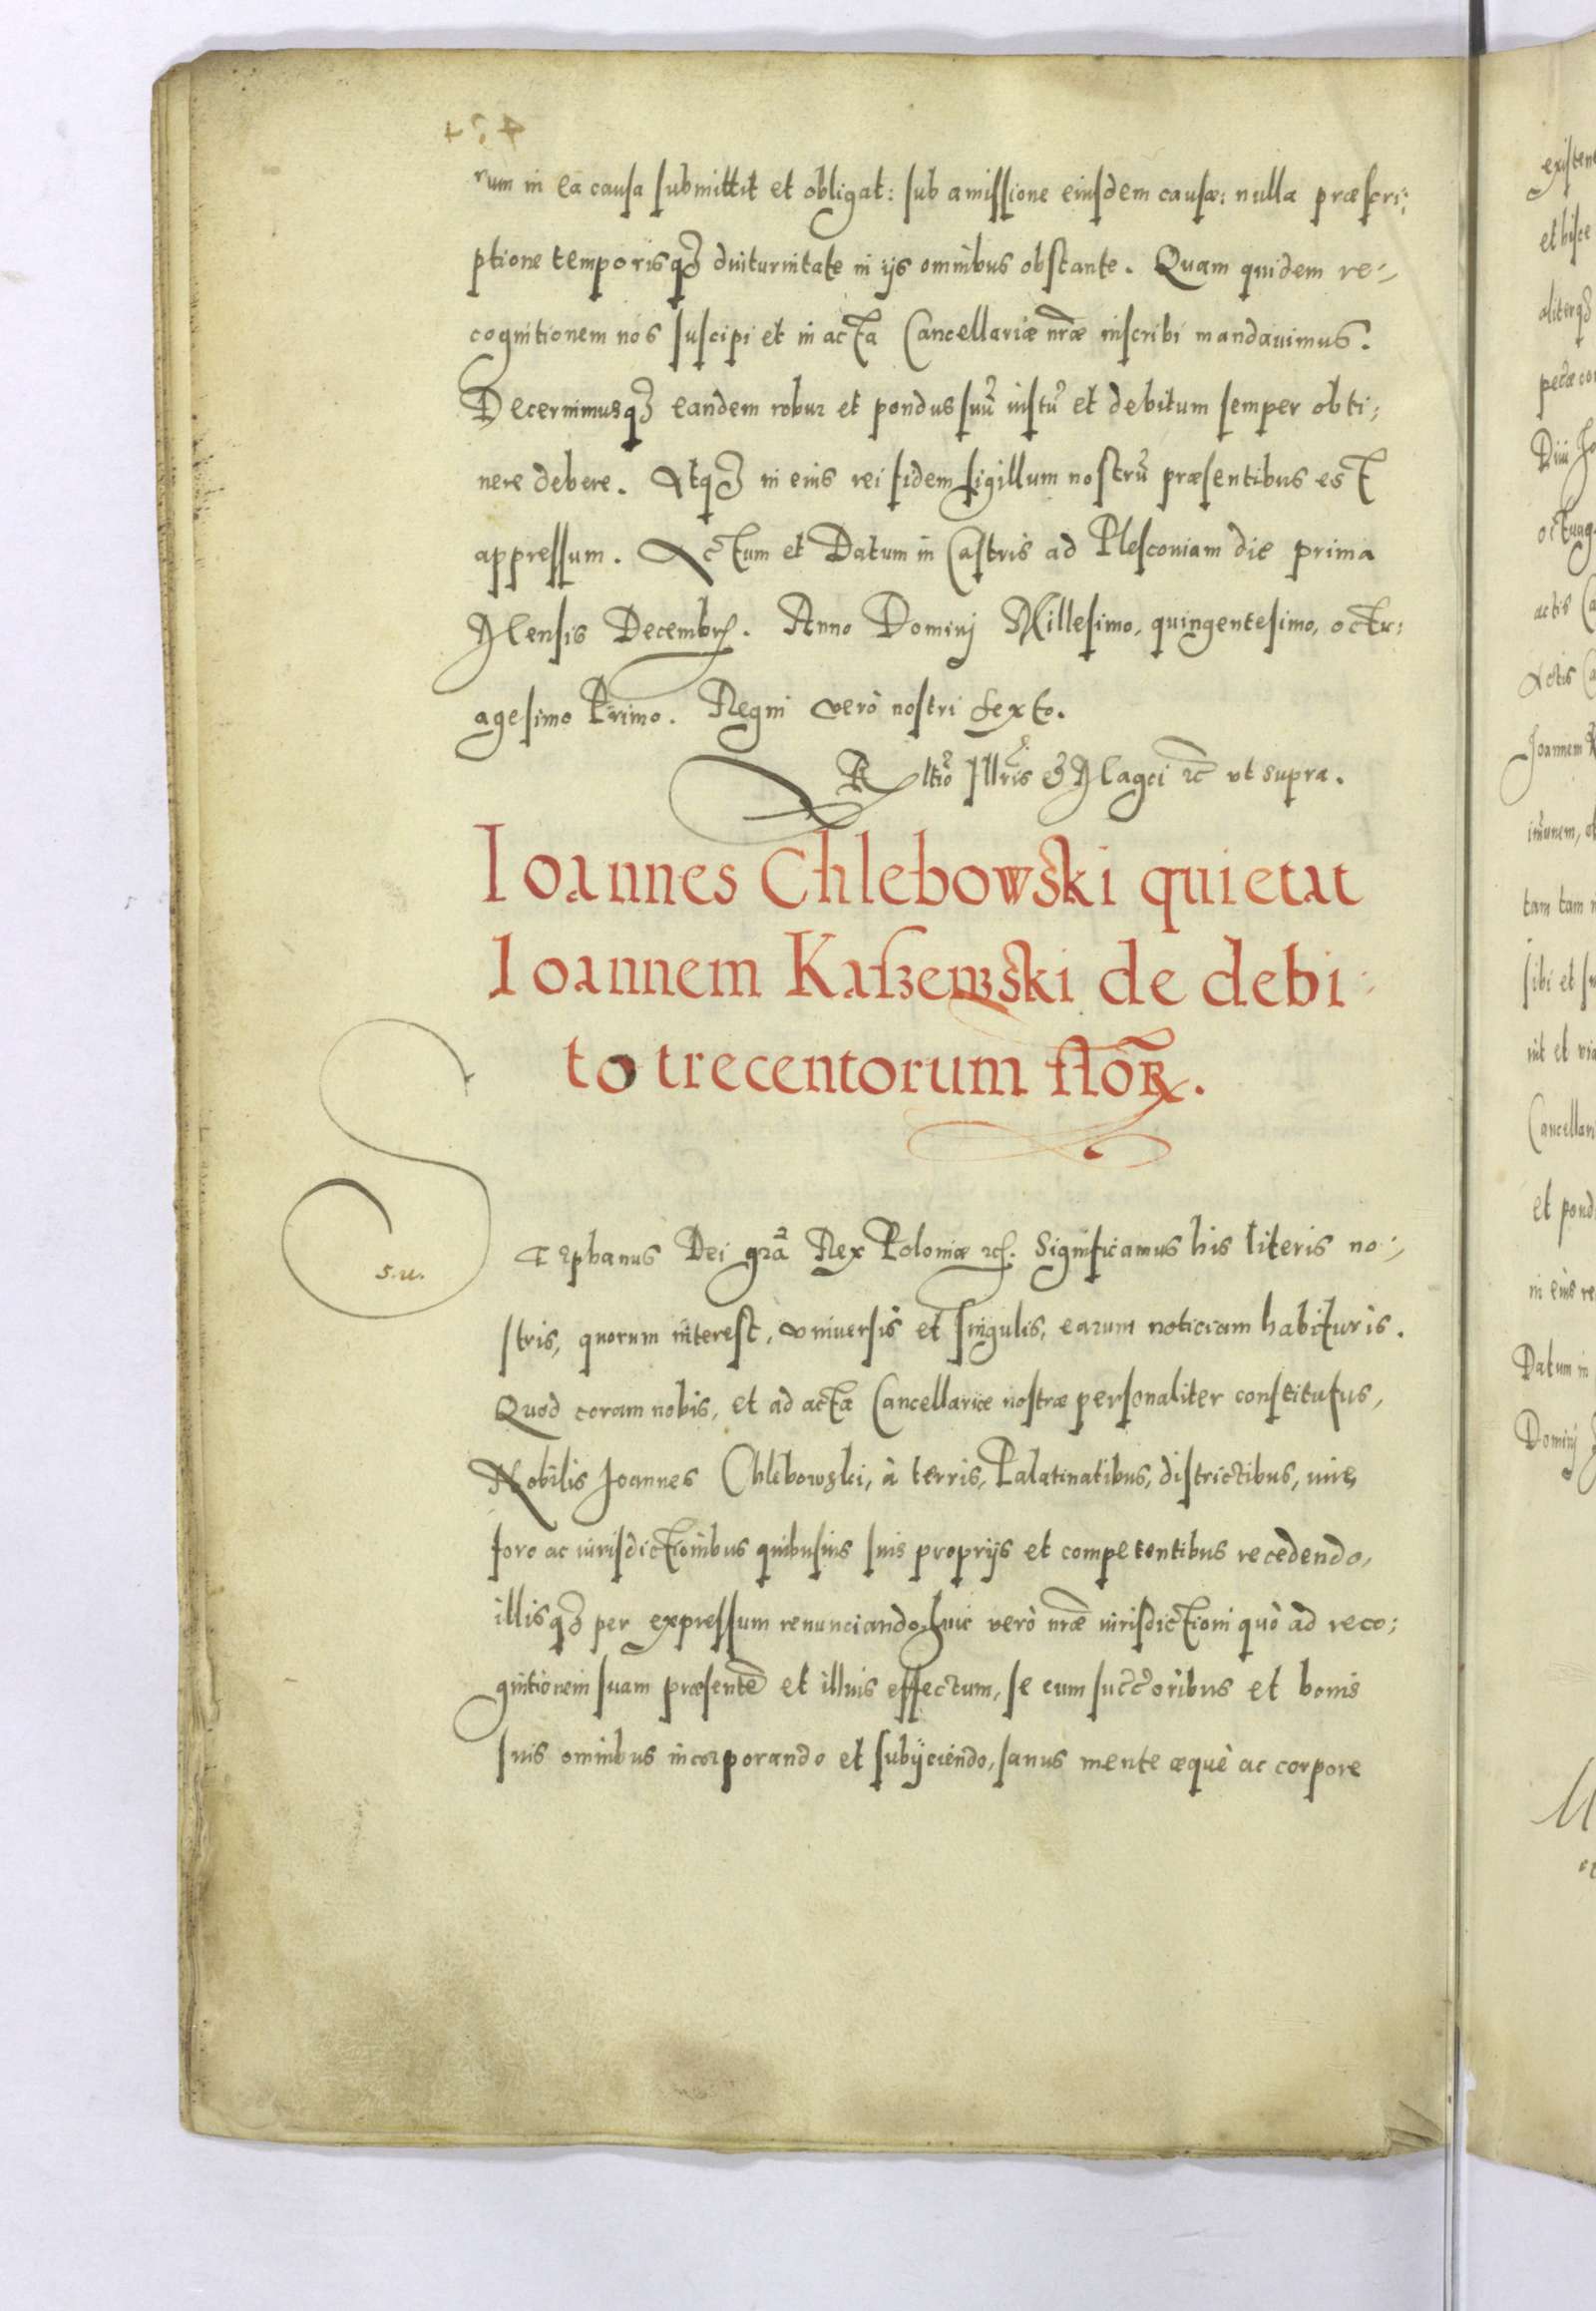 rum in ea causa submittit et obligat: sub amissione eiusdem causæ: nulla præscri:
ptione temporisq3 diuturnitate in ijs omnibus obstante. Quam quidem re:
cognitionem nos suscipi et in acta Cancellariæ nr̃æ inscribi mandauimus.
Decernimusq3 eandem robur et pondus suũ iustũ et debitum semper obti;
nere debere. Atq3 in eius rei fidem sigillum nostrũ præsentibus est
appressum. Actum et Datum in Castris ad Plesconiam die prima
Mensis Decembr. Anno Dominj Millesimo, quingentesimo, octu:
agesimo Primo. Regni verò nostri sexto.
Rltio Illris & Magci rc̃ vt supra.
Ioannes Chlebowski quietat
Ioannem Kaszewski de debi:
to trecentorum flor.
Stephanus Dei gr̃a Rex Poloniæ rc. Significamus his literis no:
stris, quorum interest, vniuersis et singulis, earum noticiam habituris.
Quod coram nobis, et ad acta Cancellariæ nostræ personaliter constitutus,
Nobilis Joannes Chlebowski, à terris, Palatinatibus, districtibus, iure,
foro ac iurisdictionibus quibusuis suis proprijs et competentibus recedendo,
illisq3 per expressum renunciando, huic verò nr̃æ iurisdictioni quò ad reco;
gnitionem suam præsentẽ et illius effectum, se cum succ̃oribus et bonis
suis omnibus incorporando et subijciendo, sanus mente æquè ac corpore
existent
et hisce
aliterq3
octuag
actis Ca
Actis Ca
Joannem K
tam tam n
sibi et su
Cancellari
et pond
in eius re
Datum in
Dominj